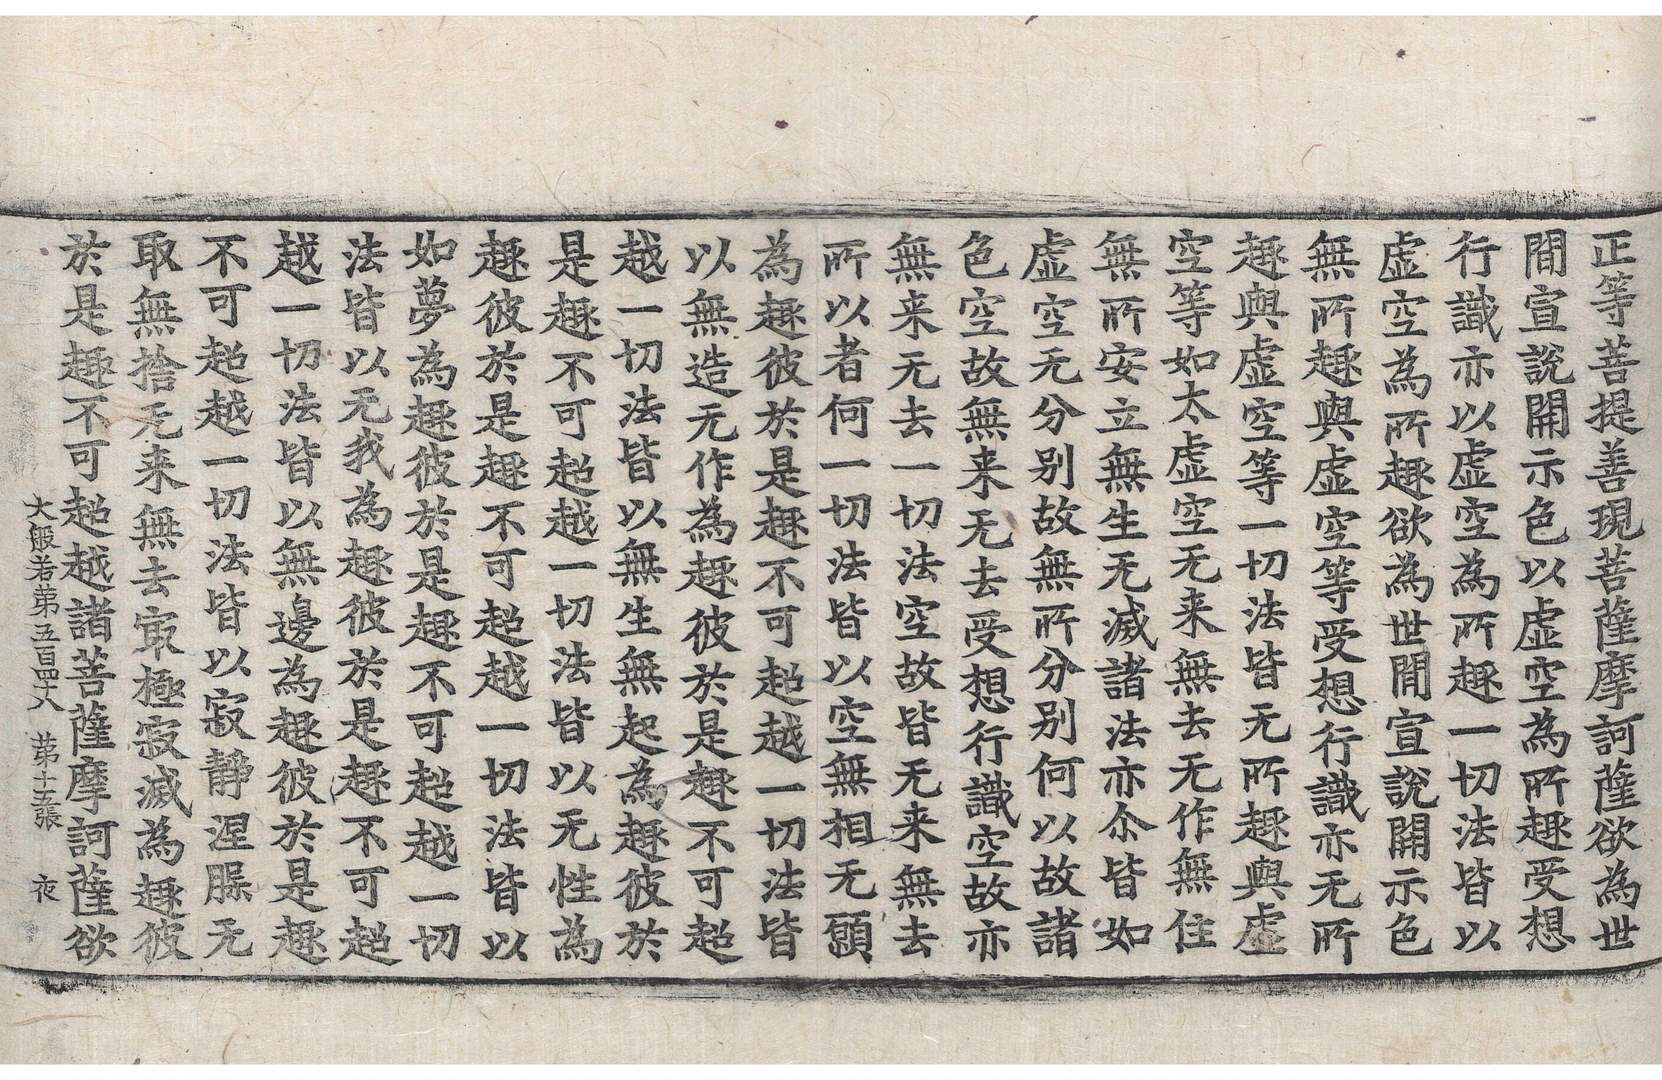 正等菩提善現菩薩摩訶薩欲為世
間宣說開示色以虛空為所趣受想
行識亦以虛空為所趣一切法皆以
虛空為所趣欲為世間宣說開示色
無所趣與虛空等受想行識亦无所
趣與虛空等一切法皆无所趣與虛
空等如太虛空无来無去无作無住
無所安立無生无滅諸法亦尒皆如
虛空无分别故無所分别何以故諸
色空故無来无去受想行識空故亦
無来无去一切法空故皆无来無去
所以者何一切法皆以空無相无願
為趣彼於是趣不可超越一切法皆
以無造无作為趣彼於是趣不可超
越一切法皆以無生無起為趣彼於
是趣不可超越一切法皆以无性為
趣彼於是趣不可超越一切法皆以
如夢為趣彼於是趣不可超越一切
法皆以无我為趣彼於是趣不可超
越一切法皆以無邊為趣彼於是趣
不可超越一切法皆以寂靜涅槃无
取無捨无来無去寂極寂滅為趣彼
於是趣不可超越諸菩薩摩訶薩欲
大般若第五百四十八 第十五張 夜